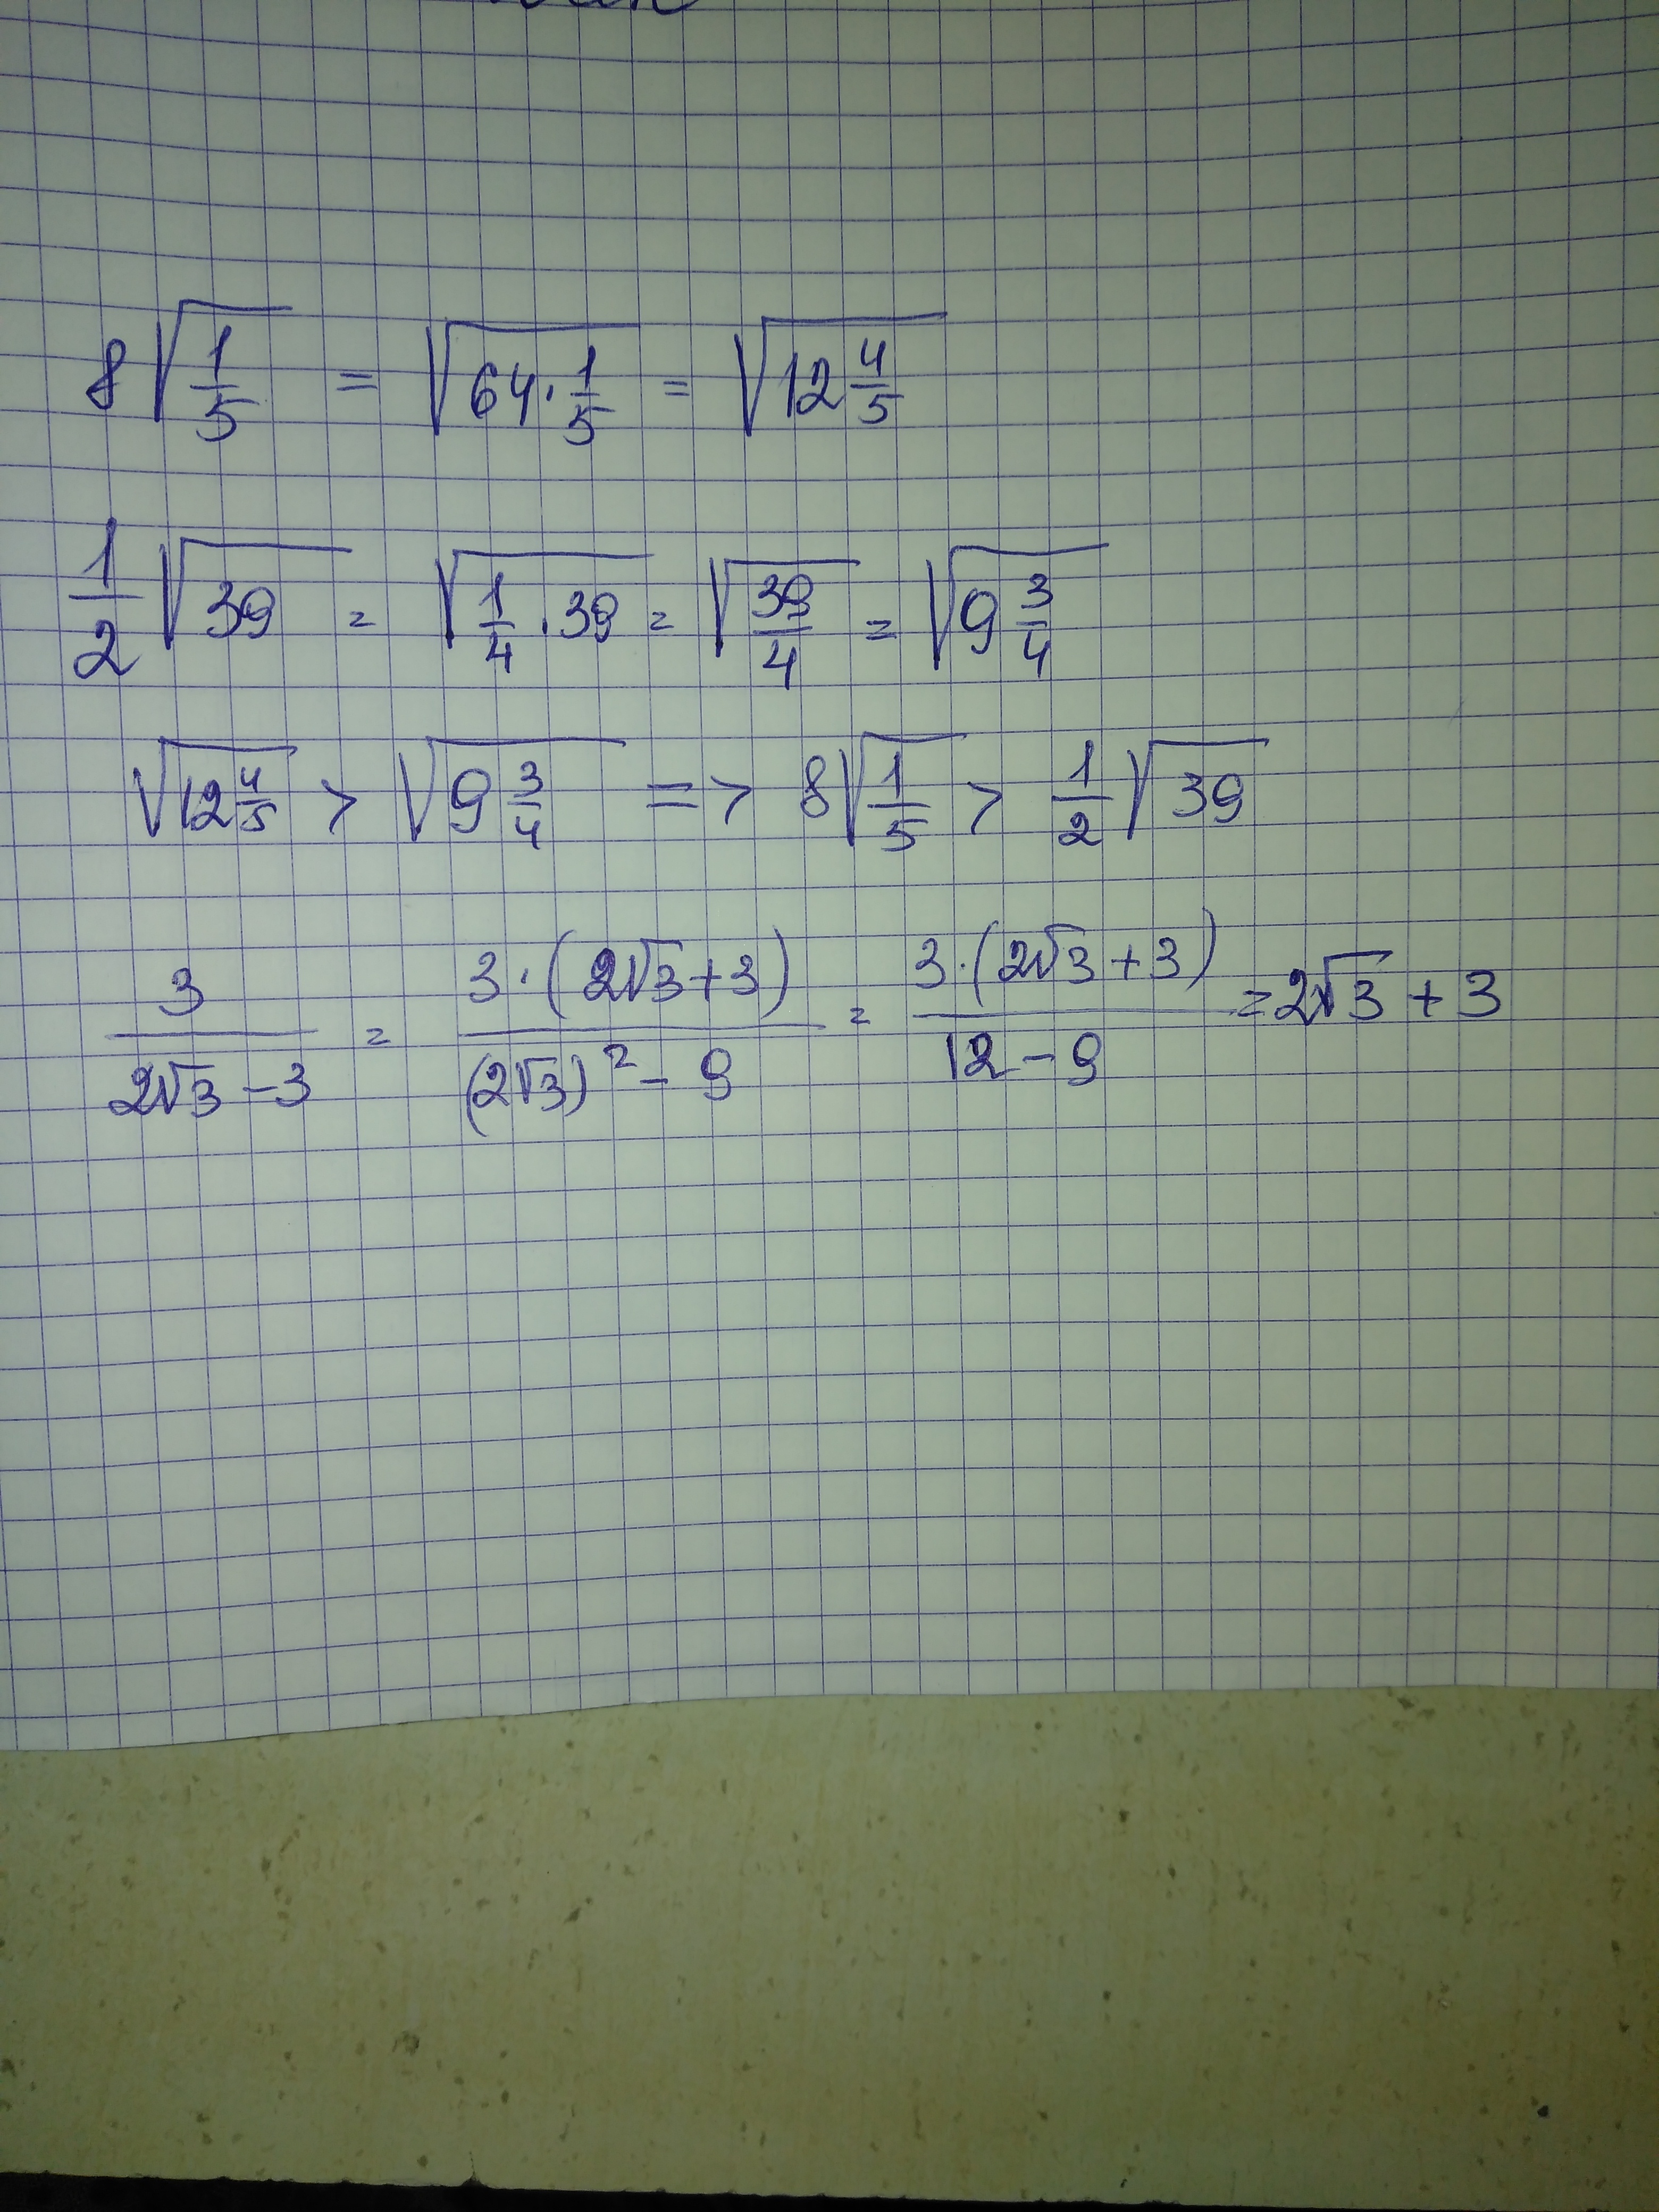 8√(1/5) = √(64·1/5) = √(12 4/5)
1/2 √39 = √(1/4 · 39) = √(39/4) = √(9 3/4)
√(12 4/5) > √(9 3/4) => 8√(1/5) > 1/2 √39
3/(2√3 - 3) = 3·(2√3+3)/((2√3)² - 9) = 3·(2√3+3)/(12 - 9) = 2√3 + 3